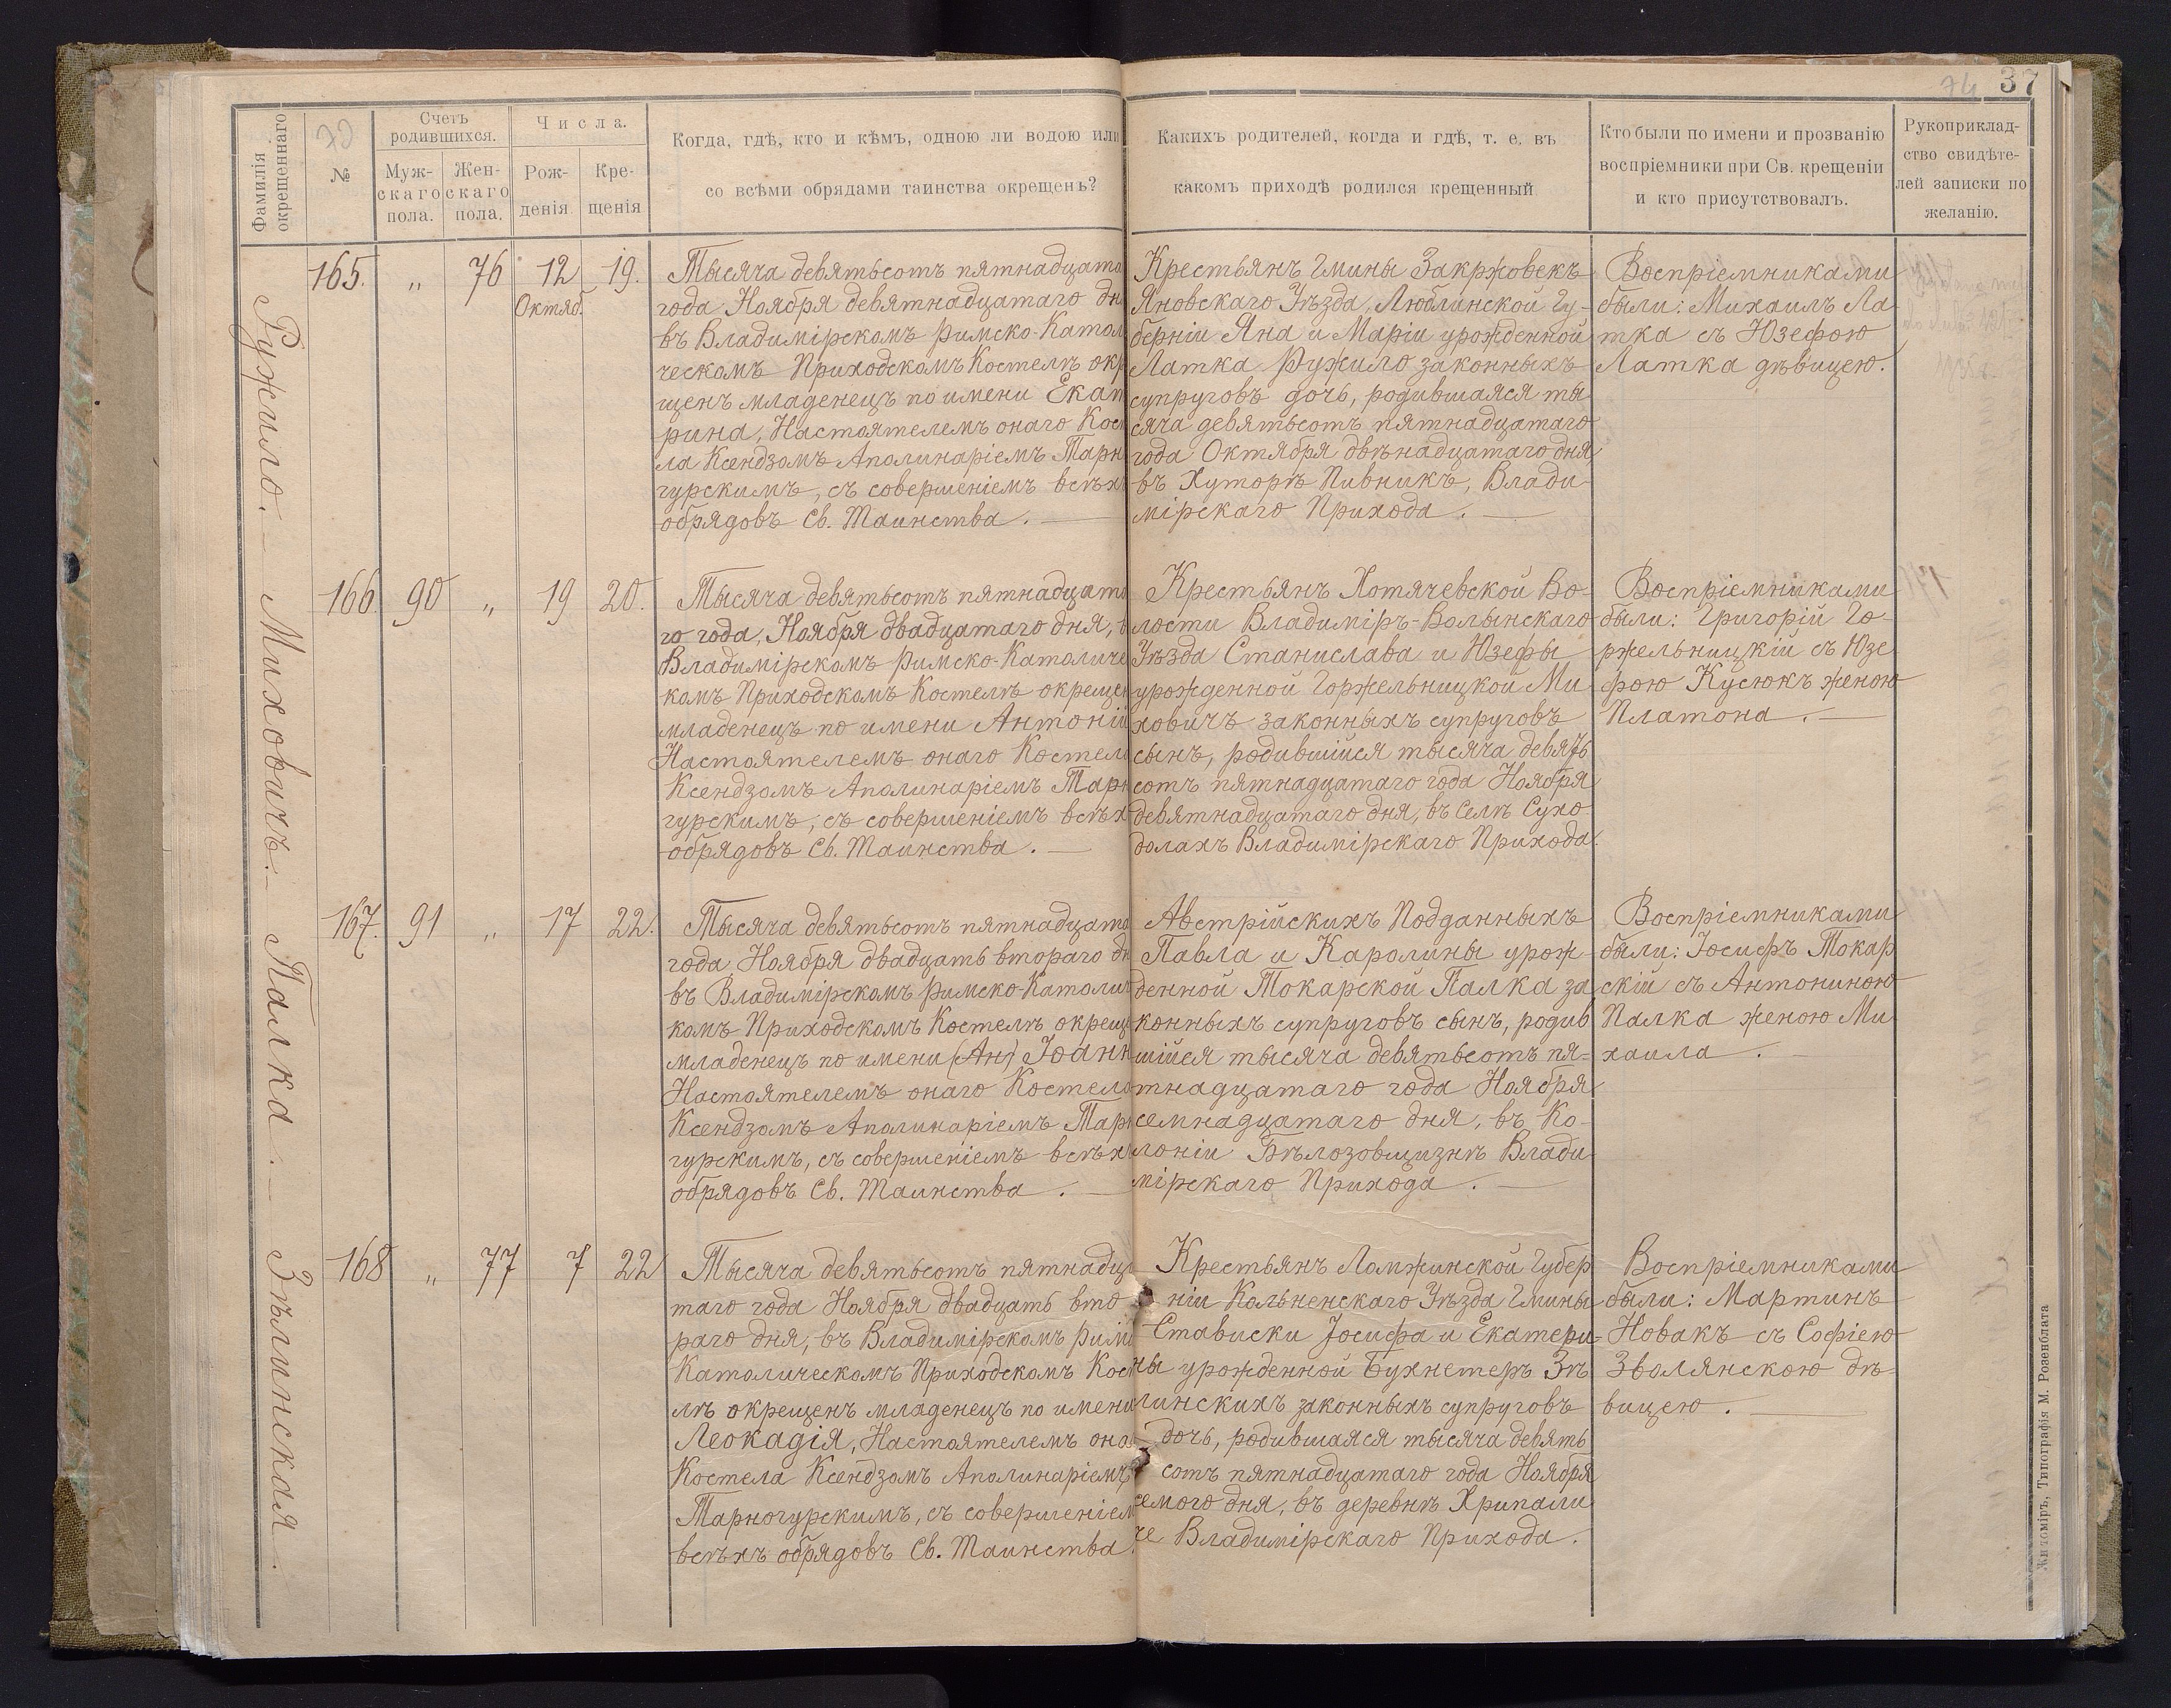 74 37
Фамилія окрещеннаго
№
Счетъ родившихся.
Муж-скаго пола.
Жен-скаго пола.
Числа.
Рож-денія
Кре-щенія
Когда, гдѣ, кто и кѣмъ, одною ли водою или
со всѣми обрядами таинства окрещенъ?
Какихъ родителей, когда и гдѣ, т. е. въ
какомъ приходѣ родился крещенный
Кто были по имени и прозванію
воспріемники при Св. крещеніи
и кто присутствовалъ.
Рукоприклад-
ство свидѣте-
лей записки по
желанію.
Ружило.
165. „ 76 12 19.
Октяб.
Тысяча девятьсотъ пятнадцата
года Ноября девятнадцатаго дн
въ Владимірскомъ Римско-Катол
ческомъ Приходскомъ Костелѣ окр
щенъ младенецъ по имени Екат
рина, Настоятелемъ онаго Кос
ла Ксендзомъ Аполинаріемъ Тарн
гурскимъ, съ совершеніемъ всѣхъ
обрядовъ Св. Таинства.
Крестьянъ Гмины Закржовекъ
Яновскаго Уѣзда, Люблинской Гу-
берніи Яна и Маріи урожденной
Латка Ружило законныхъ
супруговъ дочь, родившаяся ты
сяча девятьсотъ пятнадцатаго
года Октября двѣнадцатаго дня,
въ Хуторѣ Пивникъ, Влади-
мірскаго Прихода.
Воспріемниками
были: Михаилъ Ла
тка съ Юзефою
Латка дѣвицею.
Миховичъ.
166. 90 „ 19 20.
Тысяча девятьсотъ пятнадцата
го года, Ноября двадцатаго дня, въ
Владимірскомъ Римско-Католиче
комъ Приходскомъ Костелѣ окреще
младенецъ по имени Антоній
Настоятелемъ онаго Костела
Ксендзомъ Аполинаріемъ Тарн
гурскимъ, съ совершеніемъ всѣх
обрядовъ Св. Таинства.
Крестьянъ Хотячевской Во-
лости Владиміръ-Волынскаго
Уѣзда Станислава и Юзефы
урожденной Горжельницкой Ми
ховичъ законныхъ супруговъ
сынъ, родившійся тысяча девять
сотъ пятнадцатаго года Ноября
девятнадцатаго дня, въ Селѣ Сухо-
долахъ Владимірскаго Прихода.
Воспріемниками
были: Григорій Го-
ржельницкій съ Юзе
фою Кусюкъ женою
Платона.
Палка.
167. 91 „ 17 22.
Тысяча девятьсотъ пятнадцата
года Ноября двадцать втораго дн
въ Владимірскомъ Римско-Католич
комъ Приходскомъ Костелѣ окреще
младенецъ по имени (Ян) Іоанн
Настоятелемъ онаго Костела
Ксендзомъ Аполинаріемъ Тарн
гурскимъ, съ совершеніемъ всѣх
обрядовъ Св. Таинства.
Австрійскихъ Подданныхъ
Павла и Каролины урож-
денной Токарской Палка за
конныхъ супруговъ сынъ, родив
шійся тысяча девятьсотъ пя-
тнадцатаго года Ноября
семнадцатаго дня, въ Ко-
лоніи Бѣлозовщизнѣ Влади
мірскаго Прихода.
Воспріемниками
были: Іосифъ Токар
скій съ Антониною
Палка женою Ми
хаила.
Зѣлинская.
168 „ 77 7 22
Тысяча девятьсотъ пятнадца
таго года Ноября двадцать вто
раго дня, въ Владимірскомъ Римс
Католическомъ Приходскомъ Кос
лѣ окрещенъ младенецъ по имени
Леокадія, Настоятелемъ она
Костела Ксендзомъ Аполинаріемъ
Тарногурскимъ, съ совершеніем
всѣхъ обрядовъ Св. Таинства.
Крестьянъ Ломжинской Губер
ніи Кольненскаго Уѣзда Гмины
Стависки Іосифа и Екатери-
ны урожденной Бухнетеръ Зѣ
линскихъ законныхъ супруговъ
дочь, родившаяся тысяча девять
сотъ пятнадцатаго года Ноября
семого дня, въ деревнѣ Хрипали
че Владимірскаго Прихода.
Воспріемниками
были: Мартинъ
Новакъ съ Софіею
Зволянскою дѣ-
вицею.
Житоміръ, Типографія М. Розенблата